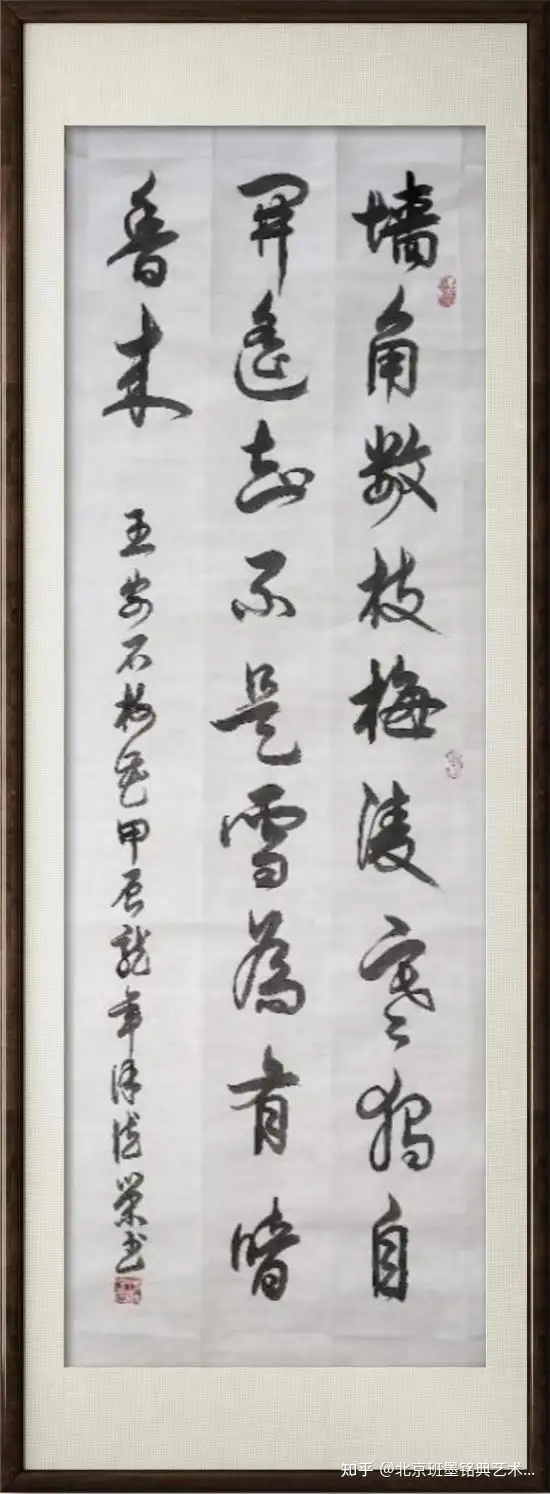 墙角数枝梅凌寒獨自
開遥知不是雪為有暗
香来
王安石梅花甲辰龍年榮书
知乎 @北京班墨铭典艺术...